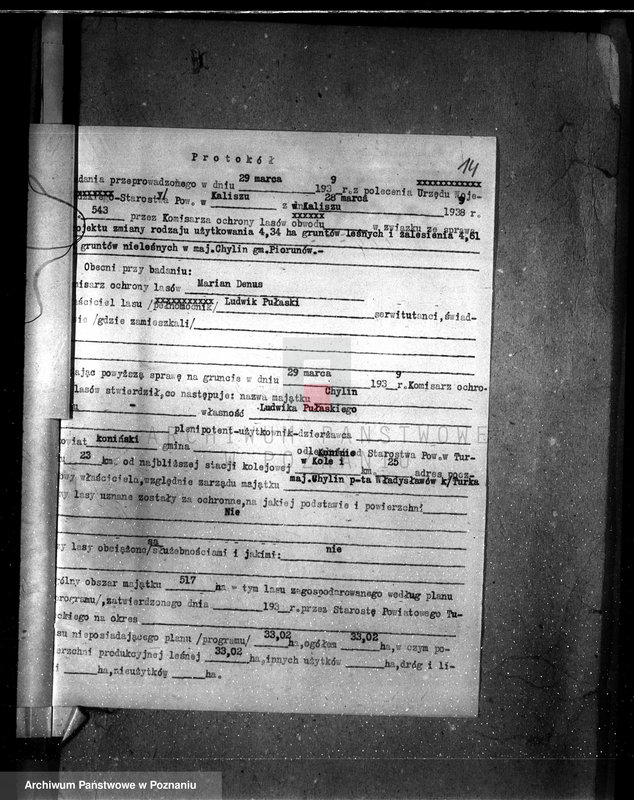 14
Protokół
dania przeprowadzonego w dniu 29 marca 1939 r. z polecenia Urzędu Woje-
Starostwa Pow. w Kaliszu z dn 28 marca 1938 r.
543 przez Komisarza ochrony lasów obwodu Kaliszu w związku ze sprawą
ojektu zmiany rodzaju użytkowania 4,34 ha gruntów leśnych i zalesienia 4,61
gruntów nieleśnych w maj.Chylin gm.Piorunów.-
Obecni przy badaniu:
misarz ochrony lasów Marian Denus
aściciel lasu /pełnomocnik/ Ludwik Pułaski serwitutanci,świad-
ie /gdzie zamieszkali/
ając powyższą sprawę na gruncie w dniu 29 marca 1939 r.Komisarz ochro-
lasów stwierdził,co następuje: nazwa majątku Chylin
własność Ludwika Pułaskiego
plenipotent-użytkownik-dzierżawca
owiat koniński gmina odległość od Starostwa Pow.w Tur-
23 km, od najbliższej stacji kolejowej w Kole i km 25 adres pocz-
owy właściciela,względnie zarządu majątku maj.Chylin p-ta Władysławów k/Turka
y lasy uznane zostały za ochronne,na jakiej podstawie i powierzchni
Nie
y lasy obciążone są służebnościami i jakimi: nie
gólny obszar majątku 517 ha w tym lasu zagospodarowanego według planu
programu/,zatwierdzonego dnia 193 r.przez Starostę Powiatowego Tu-
eckiego na okres
su nieposiadającego planu /programu/ 33,02 ha,ogółem 33,02 ha,w czym po-
erzchni produkcyjnej leśnej 33,02 ha,innych użytków ha,dróg i li-
i ha,nieużytków ha.
ARCHIWUM PAŃSTWOWE
W POZNANIU
Archiwum Państwowe w Poznaniu